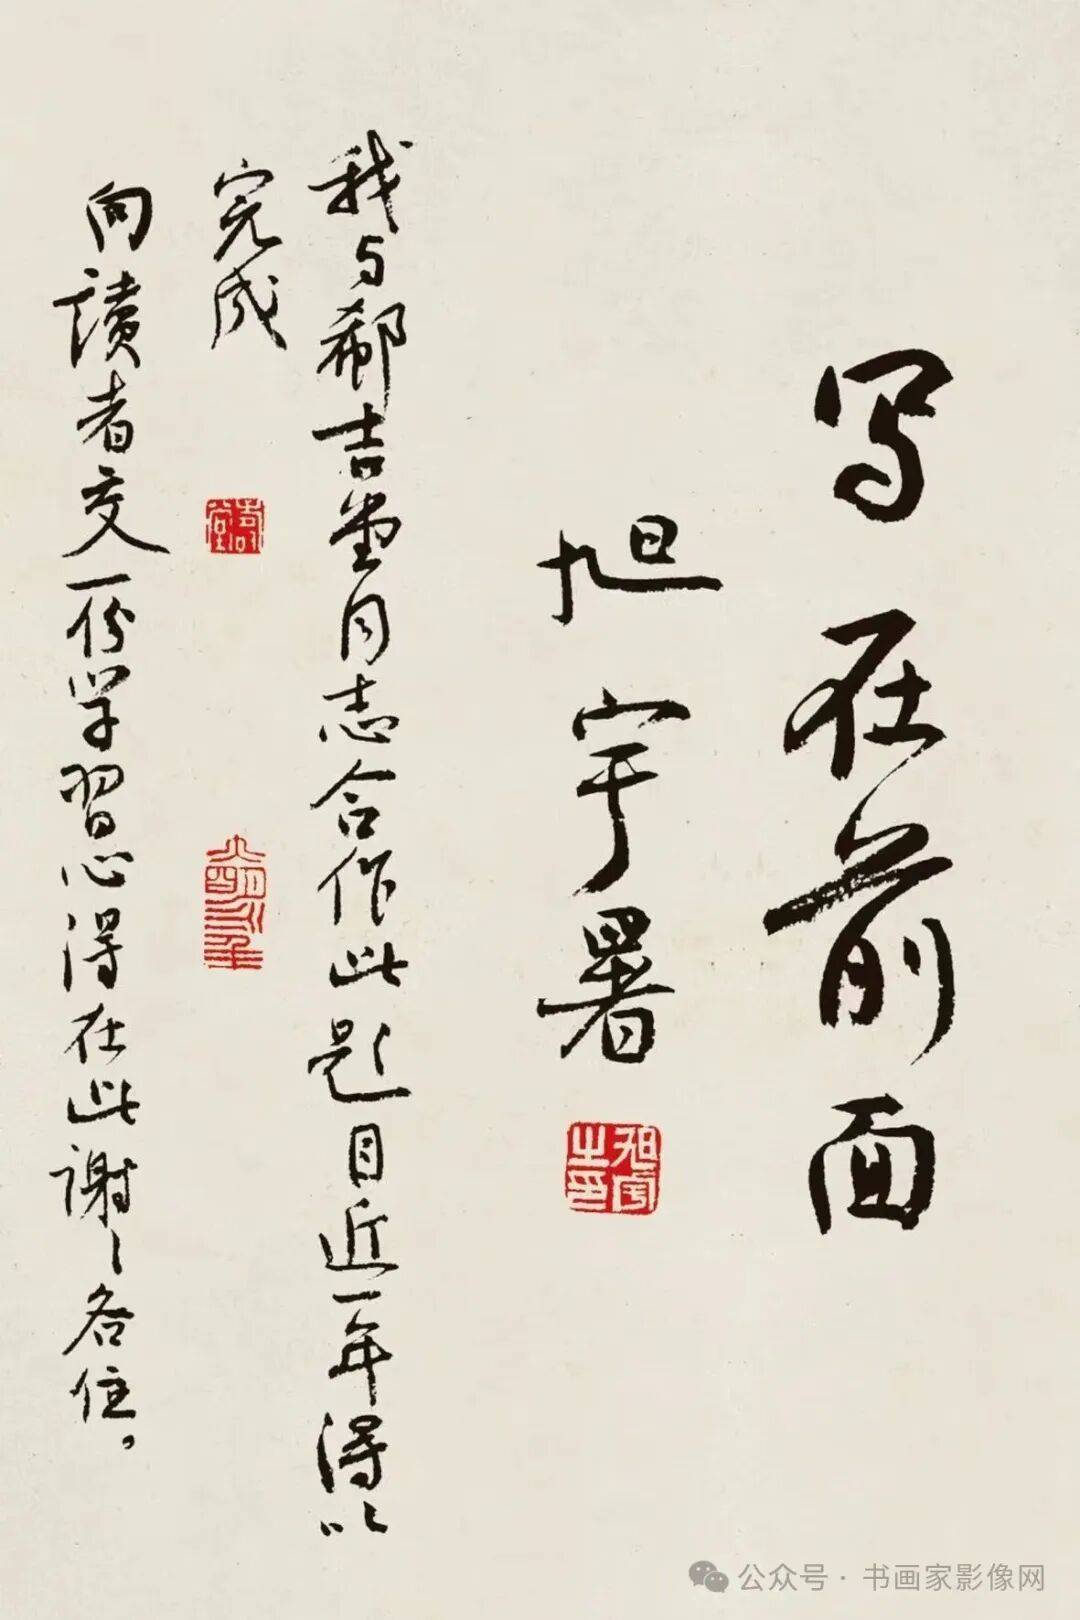 写在前面
旭宇署
旭宇之印
我与郗吉堂同志合作此题目近一年得以
完成
向讀者交一份学習心得在此謝〻各位。
公众号 · 书画家影像网